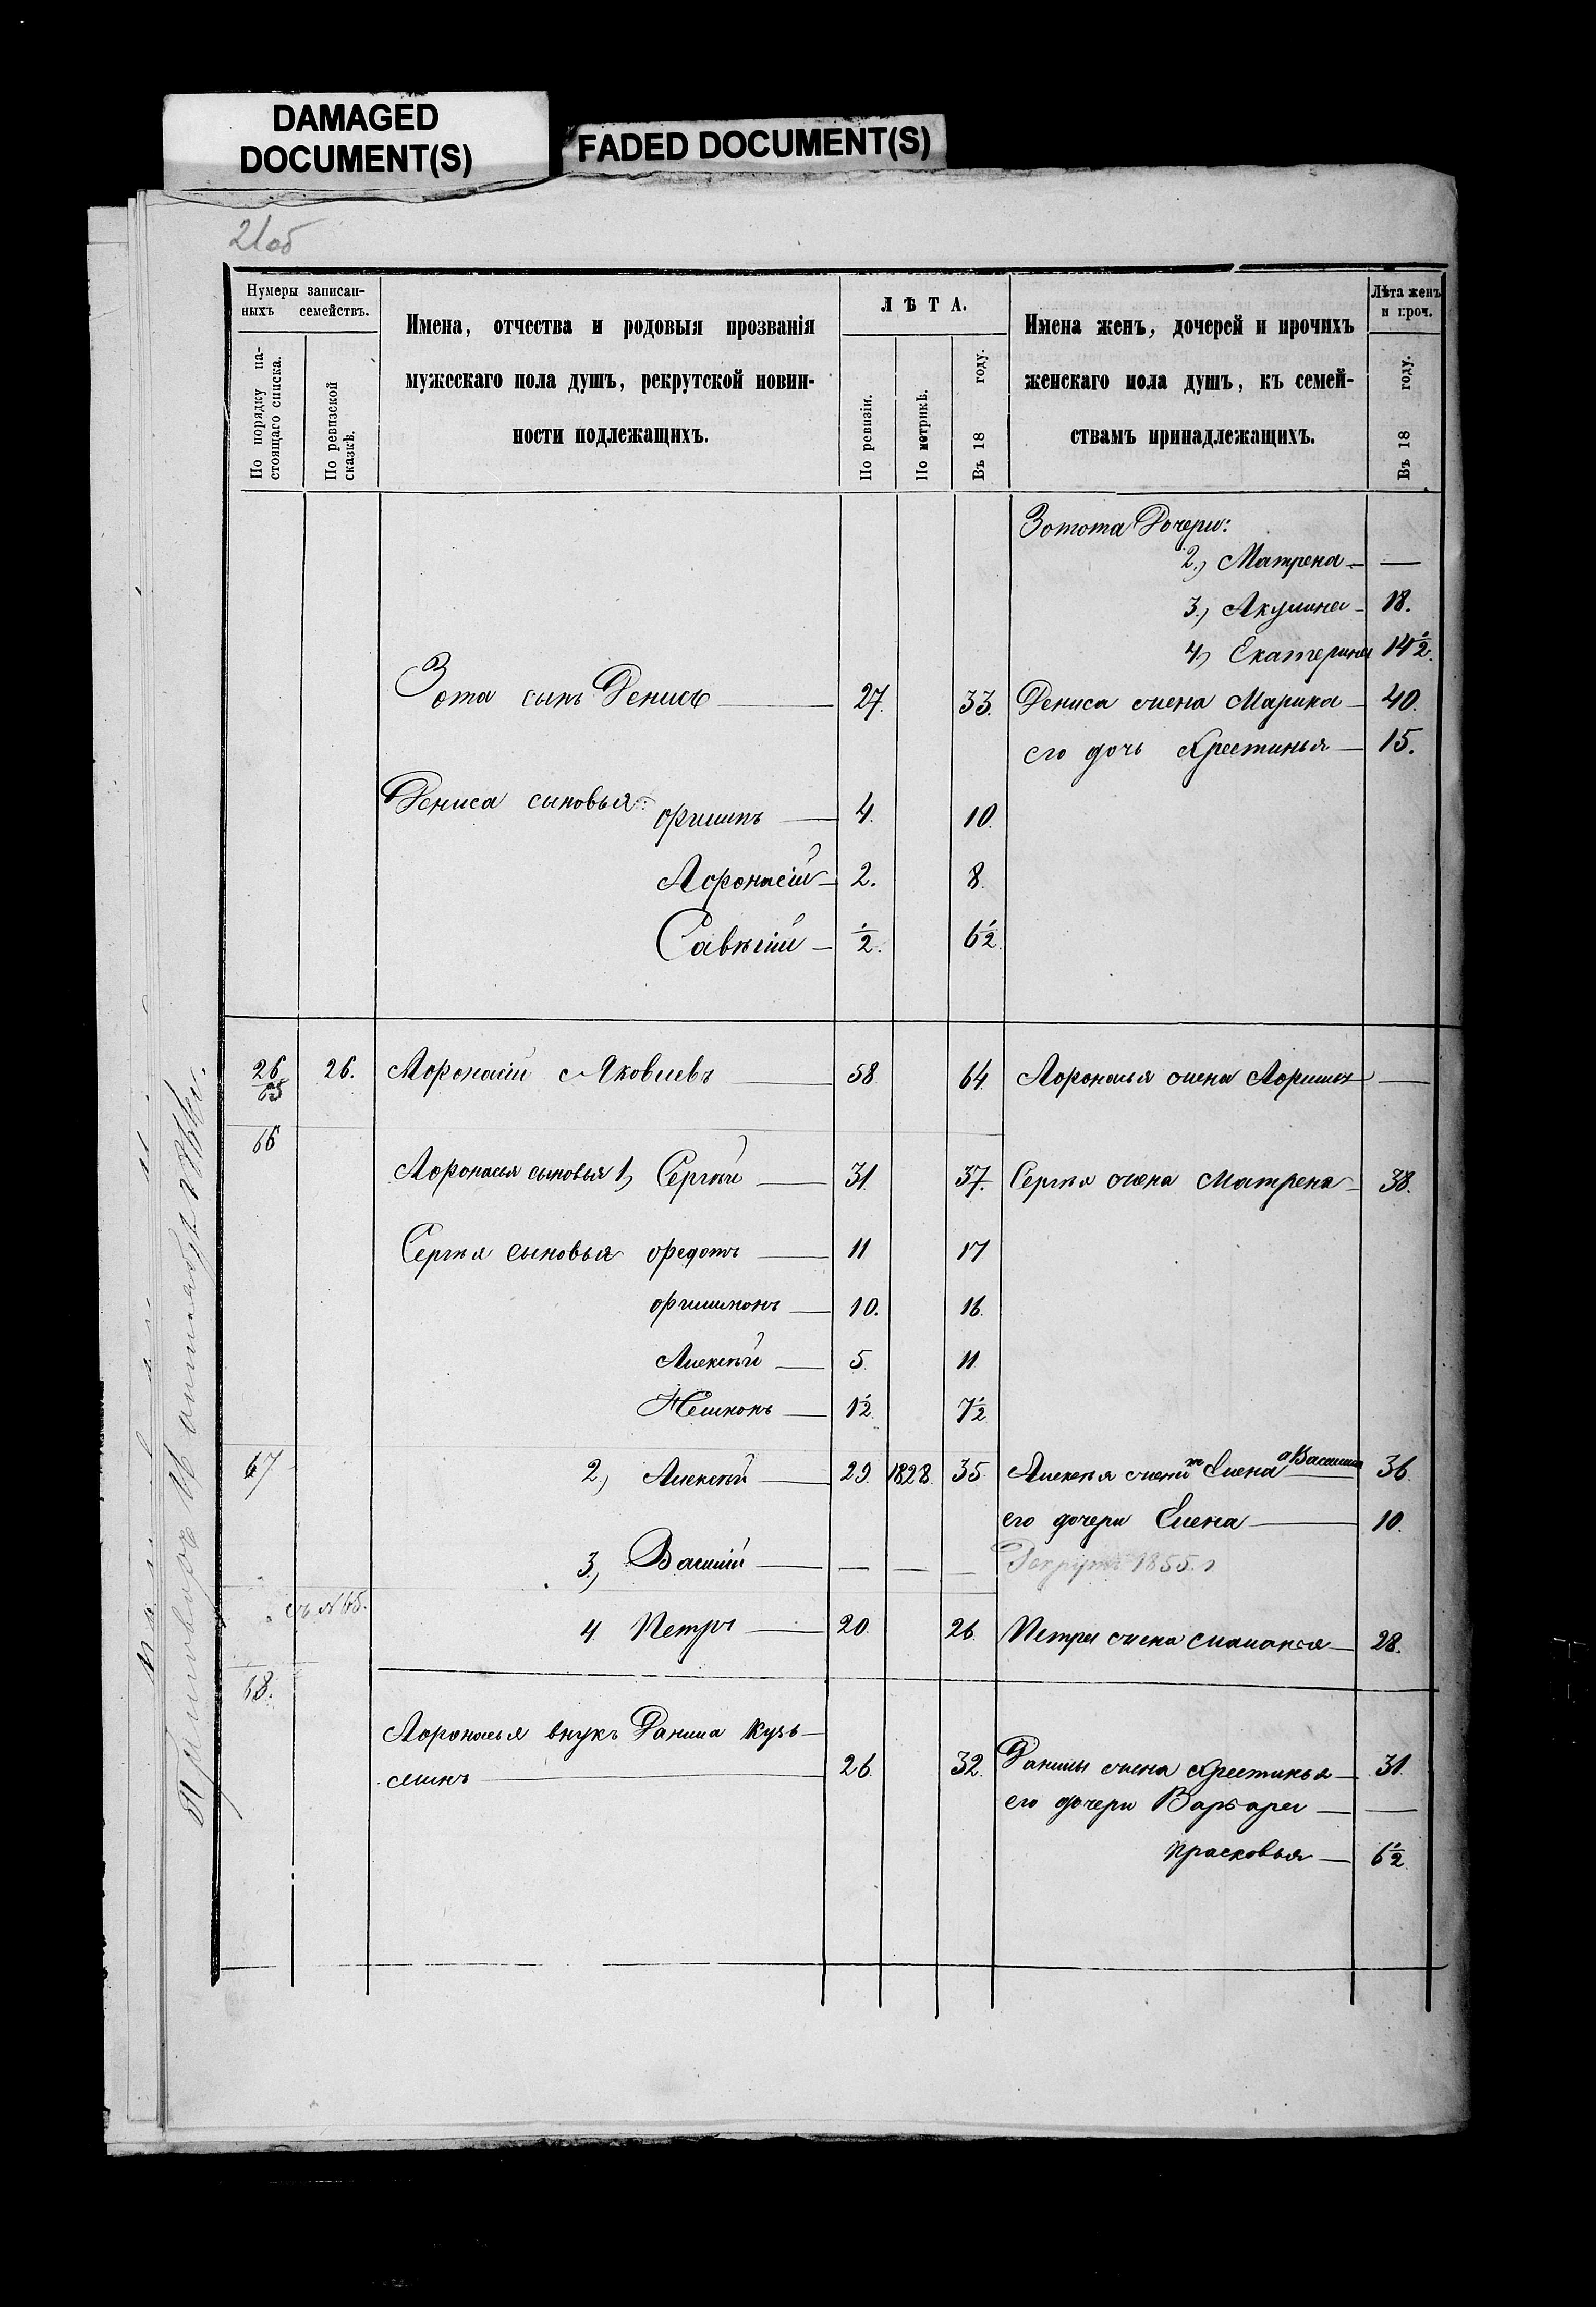 DAMAGED
DOCUMENT(S)
FADED DOCUMENT(S)
21об
Нумеры записан-
ныхъ семействъ.
По порядку на-
стоящаго списка.
По ревизской
сказкѣ.
Имена, отчества и родовыя прозванія
мужескаго пола душъ, рекрутской повин-
ности подлежащихъ.
ЛѢТА.
По ревизіи.
По метрикѣ.
Въ 18 году.
Имена женъ, дочерей и прочихъ
женскаго пола душъ, къ семей-
ствамъ принадлежащихъ.
Лѣта женъ
и проч.
Въ 18 году.
Зотота Дочери:
2.) Матрена — —
3.) Акулина — 18.
4) Екатерина 14½.
Зота сынъ Денисъ — 27. 33. Дениса жена Марика — 40.
его дочь Хрестинья — 15.
Дениса сыновья:
Филипъ — 4. 10.
Афонасій — 2. 8.
Савѣлій — ½. 6½.
26 26. Афонасій Яковлевъ — 58 64. Афонасья жена Афимья —
65
66
Афонасья сыновья 1) Сергѣй — 31. 37. Сергѣя жена Матрена — 38.
Сергѣя сыновья Федотъ — 11 17
Филимонъ — 10. 16.
Алексѣй — 5. 11
Нешконъ — 1½. 7½
67 2.) Алексѣй — 29. 1828. 35. Алексѣя жена Елена а Василиса 36.
его дочери Елена — 10.
3.) Василій — — — — Рекрутъ 1855. г
съ №65.
4 Петръ — 20. 26. Петра жена Маланья — 28.
68.
Афонасья внукъ Данила Кузь-
минъ — 26. 32. Данилы жена Хрестинья — 31.
его дочери Варвара — —
Прасковья — 6½.